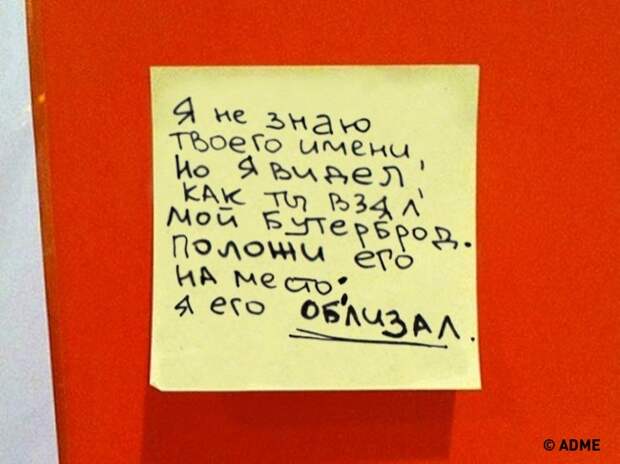 Я не знаю
твоего имени,
но я видел,
как ты взял
мой бутерброд.
Положи его
на место.
Я его ОБЛИЗАЛ.
© ADME